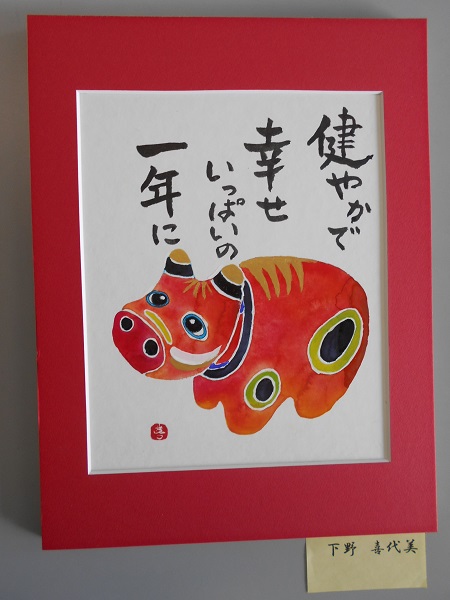 健やかで
幸せ
いっぱいの
一年に
下野 喜代美